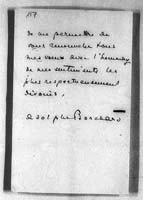 157
de me permettre de
vous renouveler tous
mes vœux avec l'hommage
de mes sentiments les
plus respectueusement
dévoués,
Adolphe Borchard